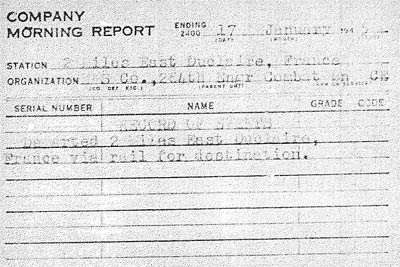 COMPANY
MORNING REPORT ENDING 2400 17 January 194
(DATE) (MONTH)
STATION 2 Miles East Duclaire, France
ORGANIZATION Co., 284th Engr Combat Bn CE
(PARENT UNIT)
SERIAL NUMBER NAME GRADE CODE
RECORD OF EVENTS
Departed 2 Miles East Duclaire,
France via rail for destination.